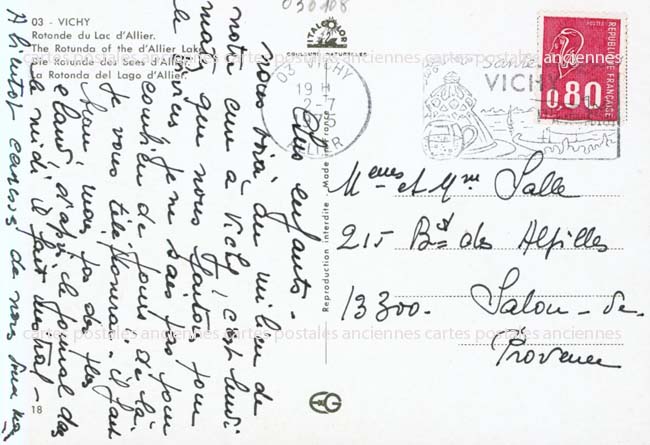 030108
03 - VICHY
Rotonde du Lac d'Allier.
The Rotunda of the d'Allier Lake
Die Rotunde des Sees d'Allier
La Rotonda del Lago d'Allier
ITALCOLOR
COULEURS NATURELLES
03 VICHY
19 H
2-7
ALLIER
Santé
VICHY
POSTES
REPUBLIQUE FRANÇAISE
0,80
Chers enfants -
nous voici au milieu de
notre cure à Vichy, c'est lundi
matin que nous partons pour
je ne sais pas pour
combien de jours de là
Je vous téléphonerai - il fait
mais pas des plus
chaud d'après le journal dans
le midi il fait mistral -
A bientôt de nous deux
Mmes et Mr Salle
215 Bd des Alpilles
13300 - Salon-de-
Provence
Reproduction interdite - Made in France
cartes postales anciennes cartes postales anciennes cartes postales anciennes
18